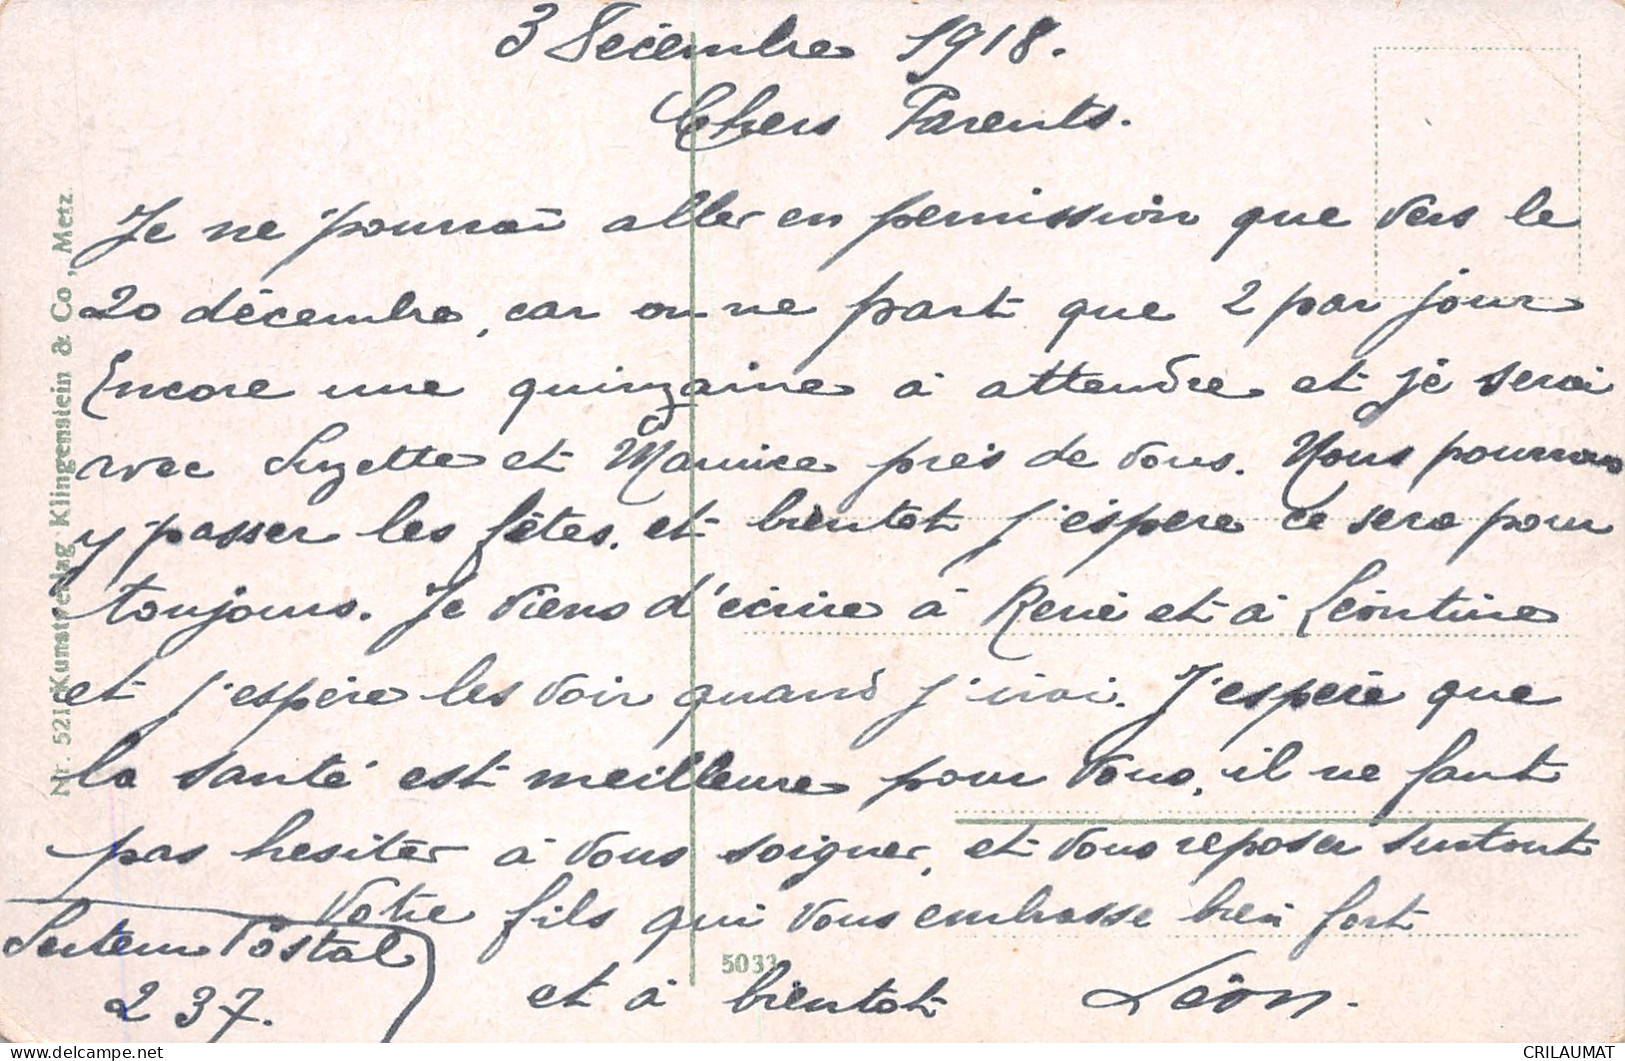 3 Décembre 1918.
Chers Parents.
Je ne pourrai aller en permission que vers le
20 décembre, car on ne part que 2 par jour
Encore une quinzaine à attendre et je serai
avec Suzette et Maurice près de vous. Nous pourrons
y passer les fêtes. et bientôt j'espère ce sera pour
toujours. Je viens d'écrire à René et à Léontine
et j'espère les voir quand j'irai. J'espère que
la santé est meilleure pour vous, il ne faut
pas hesiter à vous soigner, et vous reposer surtout
Votre fils qui vous embrasse bien fort
et à bientôt Léon.
Secteur Postal
237.
Nr. 521 Kunstverlag Klingenstein & Co, Metz.
5033
CRILAUMAT